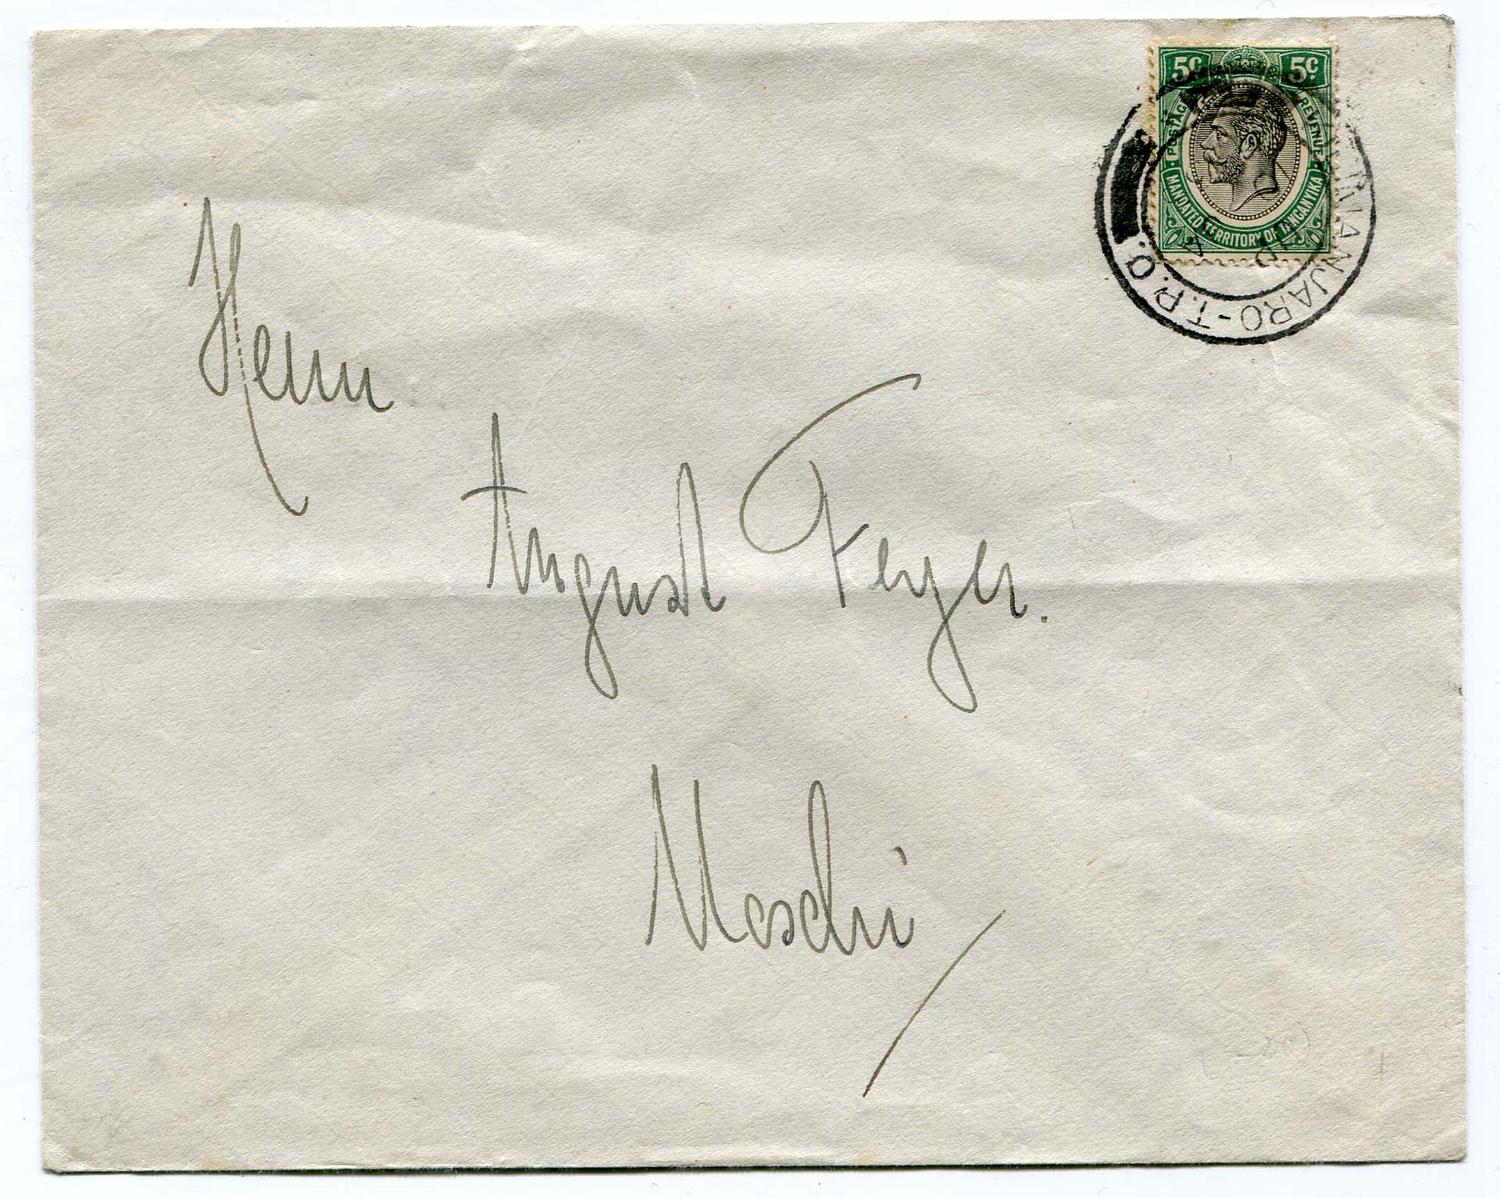 5c 5c
POSTAGE & REVENUE
MANDATED TERRITORY OF TANGANYIKA
KILIMANJARO-T.P.O.
Herrn
August Feyer.
Moschi